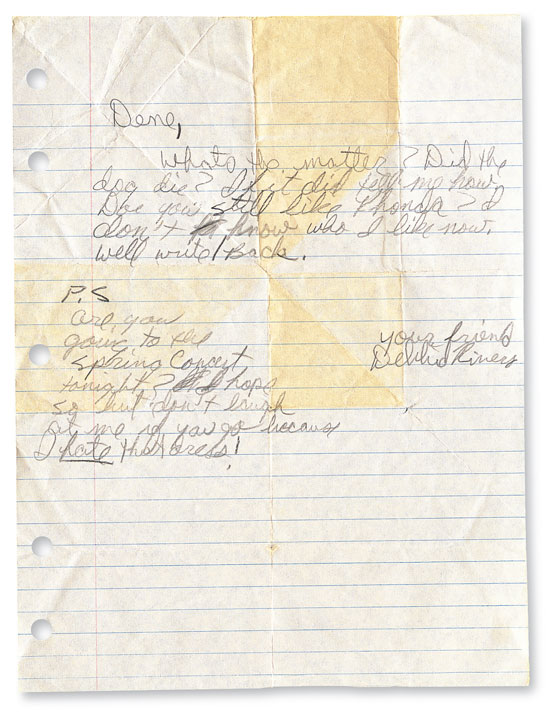 Dene,
Whats the matter? Did the
dog die? If it did tell me how.
Doe you still like Rhonda? I
don't know who I like now.
Well write back.
P.S
are you
going to the
Spring Concert
tonight? I hope
so but don't laugh
at me if you go because
I hate that dress!
your friend
Debbie